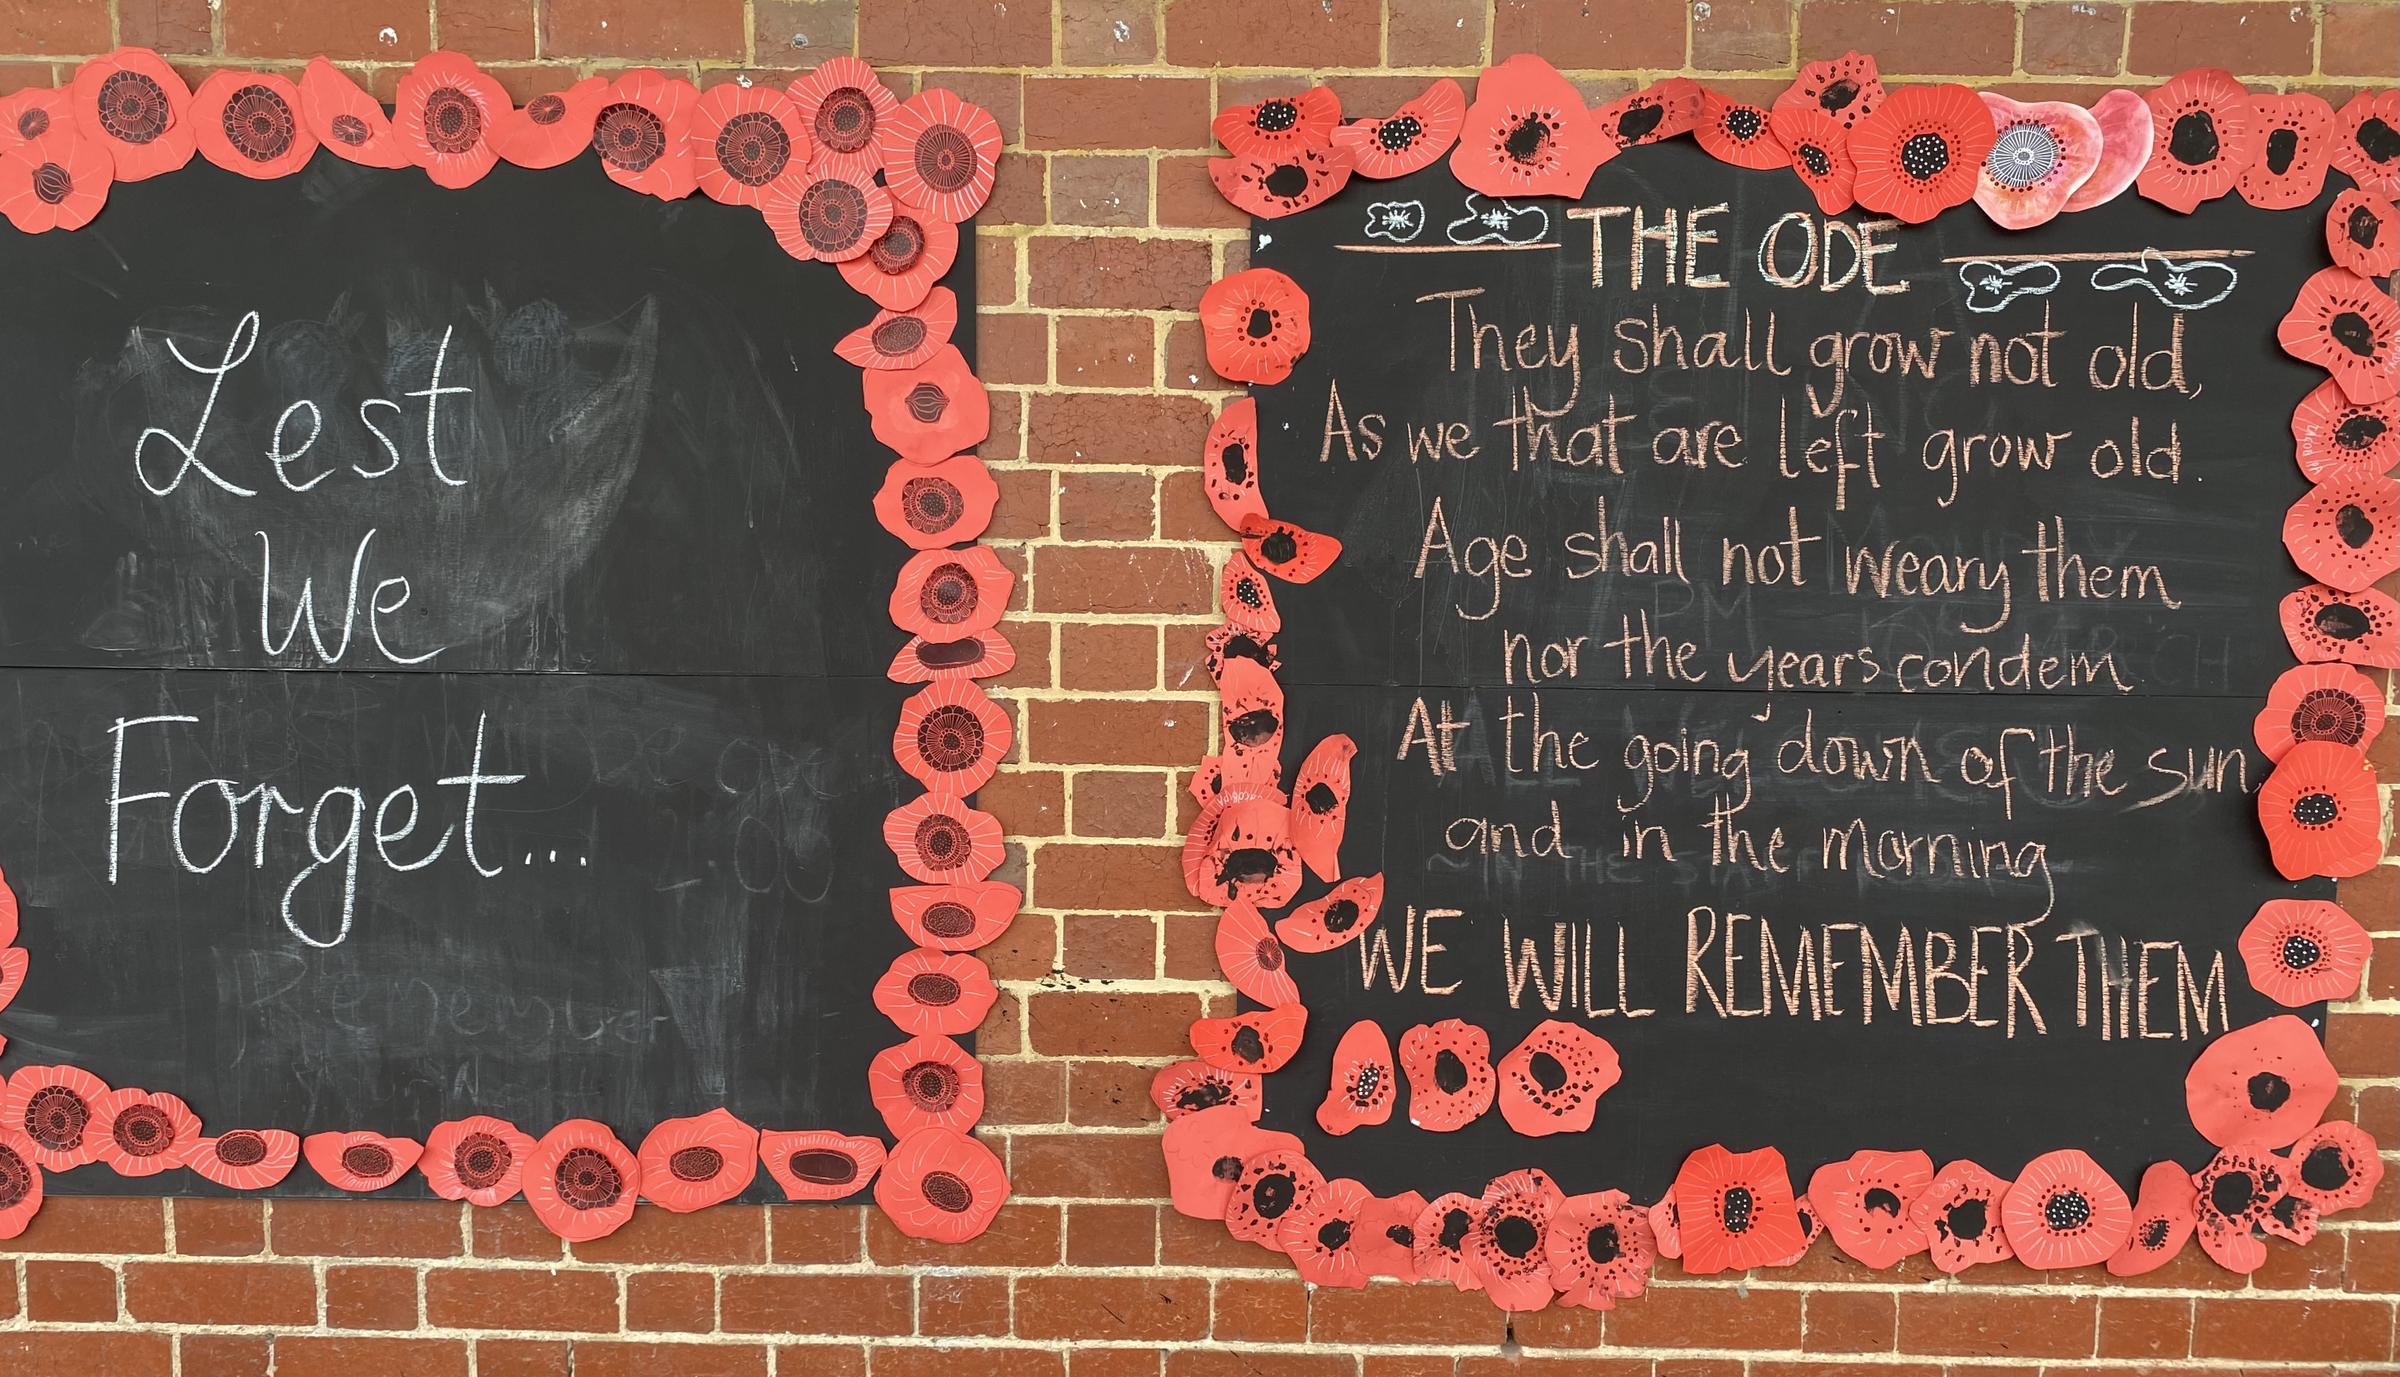 Lest
We
Forget...
THE ODE
They shall grow not old,
As we that are left grow old.
Age shall not weary them
nor the years condem
At the going down of the sun,
and in the morning
WE WILL REMEMBER THEM